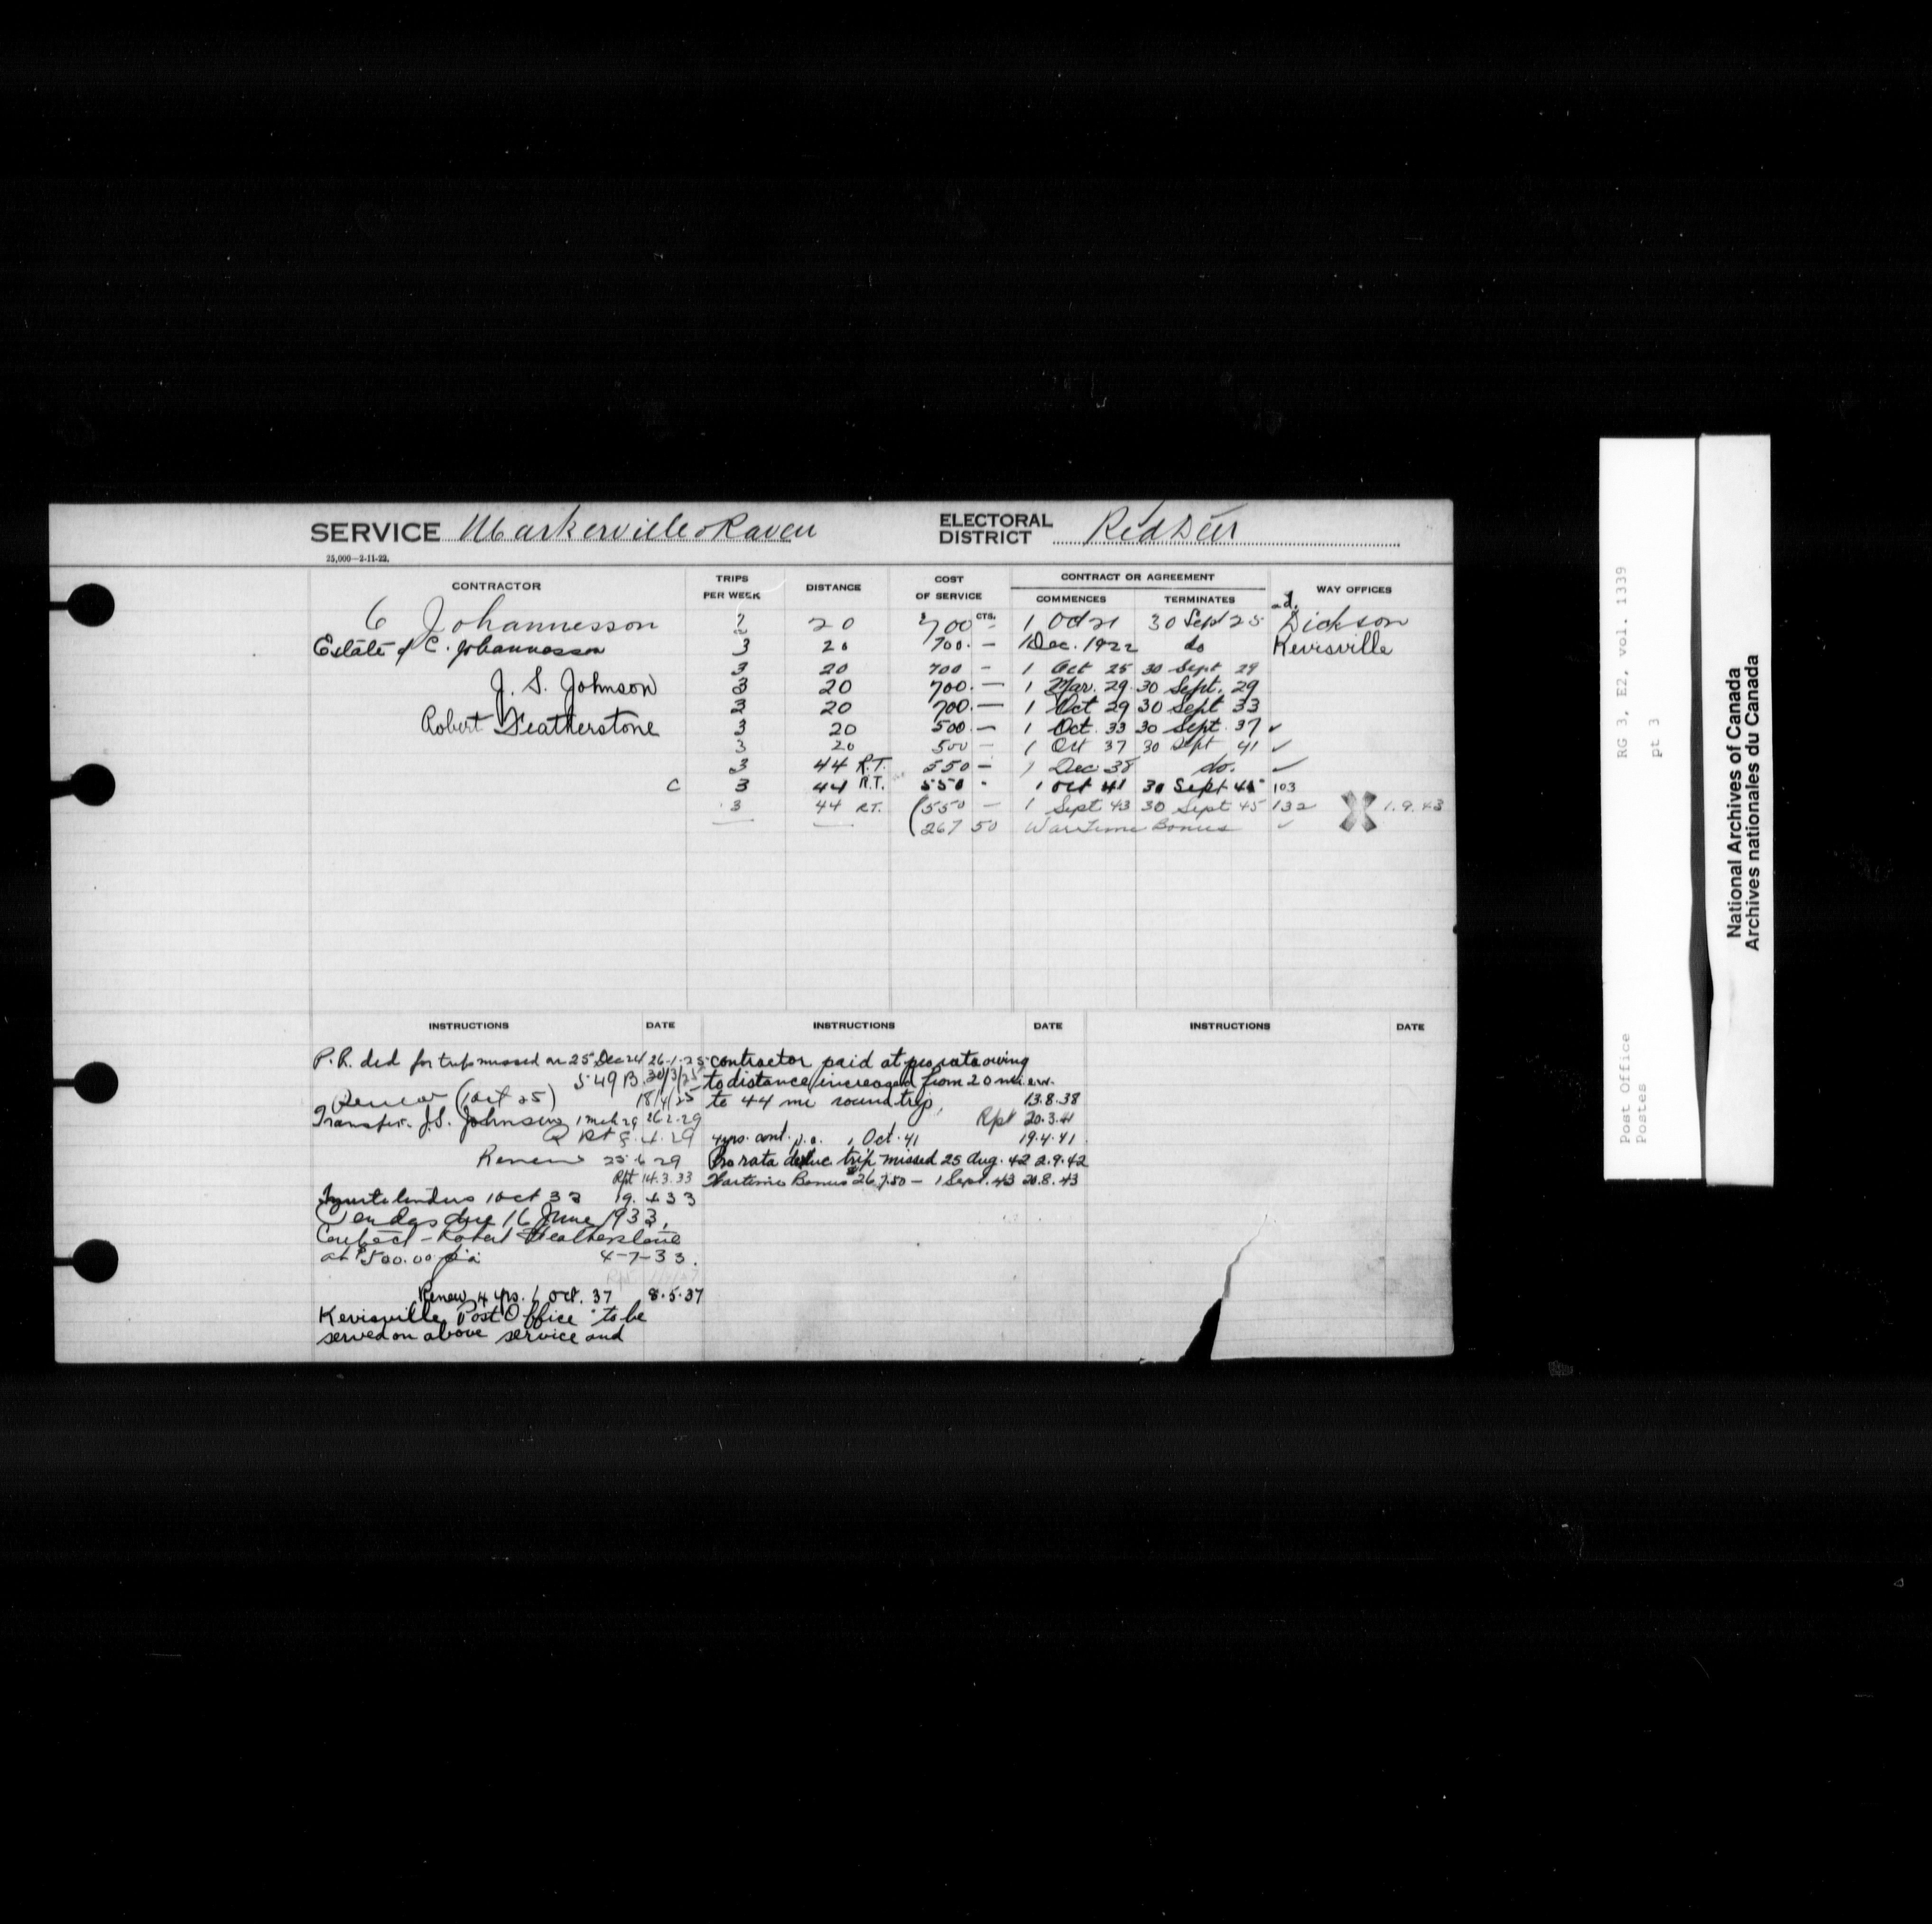 SERVICE Markerville & Raven ELECTORAL DISTRICT Red Deer
25,000—2-11-22.
CONTRACTOR TRIPS PER WEEK DISTANCE COST OF SERVICE CONTRACT OR AGREEMENT COMMENCES TERMINATES WAY OFFICES
C Johannesson 20 $700 CTS. – 1 Oct 21 30 Sept 25 Dickson
Estate of C. Johannesson 3 20 700. – 1 Dec. 1922 do Kevisville
3 20 700 – 1 Oct 25 30 Sept 29
J. S. Johnson 3 20 700. – 1 Mar. 29. 30 Sept. 29
3 20 700. – 1 Oct 29 30 Sept 33
Robert Featherstone 3 20 500 – 1 Oct. 33 30 Sept. 37 ✓
3 20 500 – 1 Oct 37 30 Sept 41 ✓
3 44 R.T. 550 – 1 Dec 38 do. ✓
C 3 44 R.T. 550 - 1 Oct 41 30 Sept 45 103
3 44 R.T. (550 – 1 Sept 43 30 Sept 45 132 1.9.43
(267 50 Wartime Bonus ✓
INSTRUCTIONS DATE INSTRUCTIONS DATE INSTRUCTIONS DATE
P.R. ded for trips missed on 25 Dec 24 26-1-25
549 B. 30/3/25
Renew (1 Oct 25) 18/4/25
Transfer. J.S. Johnson 1 Mch 29 26.2.29
Rpt 8.4.29
Renew 25.6.29
Rpt 14.3.33
Invite tenders 1 Oct 33 19.4.33
Tenders due 16 June 1933.
Contract - Robert Featherstone
at $500.00 p.a. 4-7-33.
Renew 4 yrs. 1 Oct. 37 8.5.37
Kevisville Post Office to be
served on above service and
contractor paid at pro rata owing
to distance increased from 20 mi e.w.
to 44 mi round trip. 13.8.38
Rpt 20.3.41
4 yrs. cont. p.a. 1 Oct. 41 19.4.41
Pro rata deduc. trip missed 25 Aug. 42 2.9.42
Wartime Bonus $267.50 – 1 Sept. 43 20.8.43
RG 3, E2, vol. 1339
pt 3
Post Office
Postes
National Archives of Canada
Archives nationales du Canada